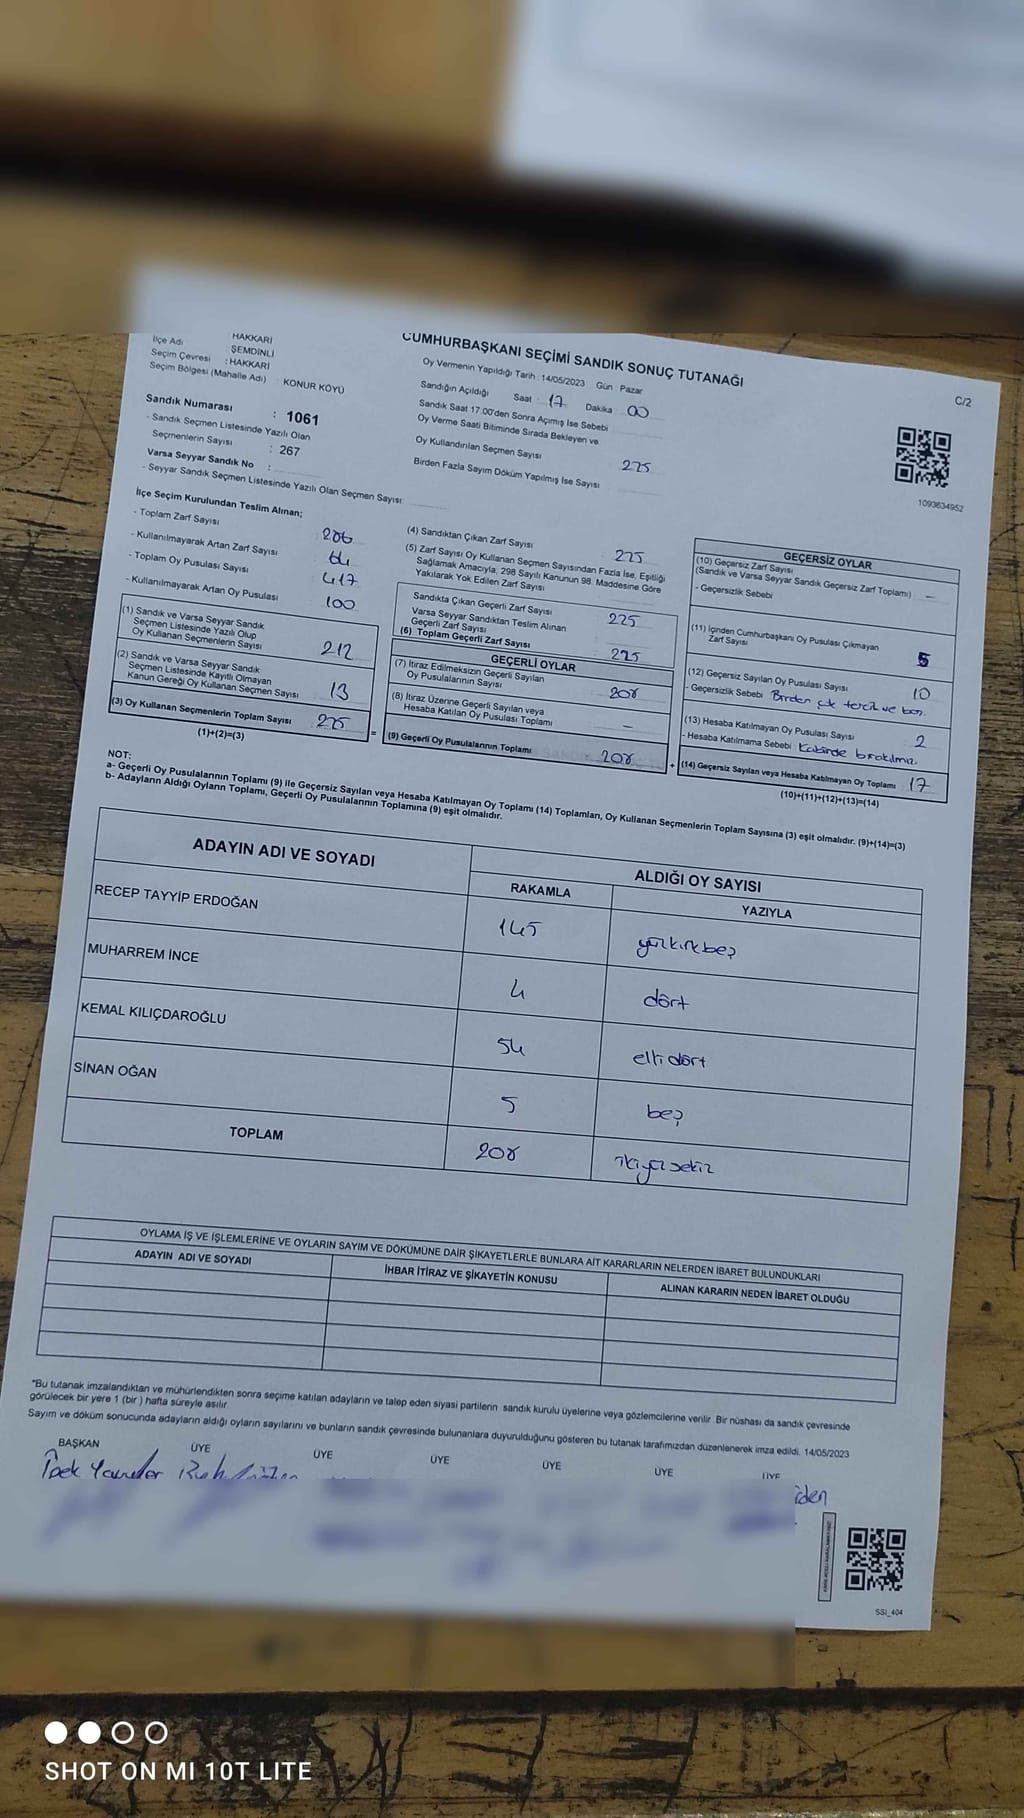 HAKKARİ
İlçe Adı : ŞEMDİNLİ
Seçim Çevresi : HAKKARİ
Seçim Bölgesi (Mahalle Adı) : KONUR KÖYÜ
Sandık Numarası : 1061
- Sandık Seçmen Listesinde Yazılı Olan
Seçmenlerin Sayısı : 267
Varsa Seyyar Sandık No :
- Seyyar Sandık Seçmen Listesinde Yazılı Olan Seçmen Sayısı:
CUMHURBAŞKANI SEÇİMİ SANDIK SONUÇ TUTANAĞI
Oy Vermenin Yapıldığı Tarih : 14/05/2023 Gün : Pazar
Sandığın Açıldığı Saat 17 Dakika 00
Sandık Saat 17.00'den Sonra Açımış İse Sebebi
Oy Verme Saati Bitiminde Sırada Bekleyen ve
Oy Kullandırılan Seçmen Sayısı 225
Birden Fazla Sayım Döküm Yapılmış İse Sayısı
C/2
1093634952
İlçe Seçim Kurulundan Teslim Alınan;
- Toplam Zarf Sayısı
- Kullanılmayarak Artan Zarf Sayısı
- Toplam Oy Pusulası Sayısı 417
- Kullanılmayarak Artan Oy Pusulası 100
(1) Sandık ve Varsa Seyyar Sandık
Seçmen Listesinde Yazılı Olup
Oy Kullanan Seçmenlerin Sayısı 212
(2) Sandık ve Varsa Seyyar Sandık
Seçmen Listesinde Kayıtlı Olmayan
Kanun Gereği Oy Kullanan Seçmen Sayısı 13
(3) Oy Kullanan Seçmenlerin Toplam Sayısı 225
(1)+(2)=(3)
(4) Sandıktan Çıkan Zarf Sayısı 225
(5) Zarf Sayısı Oy Kullanan Seçmen Sayısından Fazla İse, Eşitliği
Sağlamak Amacıyla, 298 Sayılı Kanunun 98. Maddesine Göre
Yakılarak Yok Edilen Zarf Sayısı
Sandıkta Çıkan Geçerli Zarf Sayısı 225
Varsa Seyyar Sandıktan Teslim Alınan
Geçerli Zarf Sayısı
(6) Toplam Geçerli Zarf Sayısı 225
GEÇERLİ OYLAR
(7) İtiraz Edilmeksizin Geçerli Sayılan
Oy Pusulalarının Sayısı 208
(8) İtiraz Üzerine Geçerli Sayılan veya
Hesaba Katılan Oy Pusulası Toplamı -
(9) Geçerli Oy Pusulalarının Toplamı 208
=
+
GEÇERSİZ OYLAR
(10) Geçersiz Zarf Sayısı
(Sandık ve Varsa Seyyar Sandık Geçersiz Zarf Toplamı) -
- Geçersizlik Sebebi
(11) İçinden Cumhurbaşkanı Oy Pusulası Çıkmayan
Zarf Sayısı 5
(12) Geçersiz Sayılan Oy Pusulası Sayısı 10
- Geçersizlik Sebebi Birden çok tercih ve boş.
(13) Hesaba Katılmayan Oy Pusulası Sayısı 2
- Hesaba Katılmama Sebebi Kabinde bırakılmış.
(14) Geçersiz Sayılan veya Hesaba Katılmayan Oy Toplamı 17
(10)+(11)+(12)+(13)=(14)
NOT:
a- Geçerli Oy Pusulalarının Toplamı (9) ile Geçersiz Sayılan veya Hesaba Katılmayan Oy Toplamı (14) Toplamları, Oy Kullanan Seçmenlerin Toplam Sayısına (3) eşit olmalıdır. (9)+(14)=(3)
b- Adayların Aldığı Oyların Toplamı, Geçerli Oy Pusulalarının Toplamına (9) eşit olmalıdır.
ADAYIN ADI VE SOYADI ALDIĞI OY SAYISI
RAKAMLA YAZIYLA
RECEP TAYYİP ERDOĞAN 145 yüzkırkbeş
MUHARREM İNCE 4 dört
KEMAL KILIÇDAROĞLU 54 elli dört
SİNAN OĞAN 5 beş
TOPLAM 208 ikiyüzsekiz
OYLAMA İŞ VE İŞLEMLERİNE VE OYLARIN SAYIM VE DÖKÜMÜNE DAİR ŞİKAYETLERLE BUNLARA AİT KARARLARIN NELERDEN İBARET BULUNDUKLARI
ADAYIN ADI VE SOYADI İHBAR İTİRAZ VE ŞİKAYETİN KONUSU ALINAN KARARIN NEDEN İBARET OLDUĞU
*Bu tutanak imzalandıktan ve mühürlendikten sonra seçime katılan adayların ve talep eden siyasi partilerin sandık kurulu üyelerine veya gözlemcilerine verilir. Bir nüshası da sandık çevresinde
görülecek bir yere 1 (bir ) hafta süreyle asılır.
Sayım ve döküm sonucunda adayların aldığı oyların sayılarını ve bunların sandık çevresinde bulunanlara duyurulduğunu gösteren bu tutanak tarafımızdan düzenlenerek imza edildi. 14/05/2023
BAŞKAN ÜYE ÜYE ÜYE ÜYE ÜYE ÜYE
İpek
SSI_404
SHOT ON MI 10T LITE